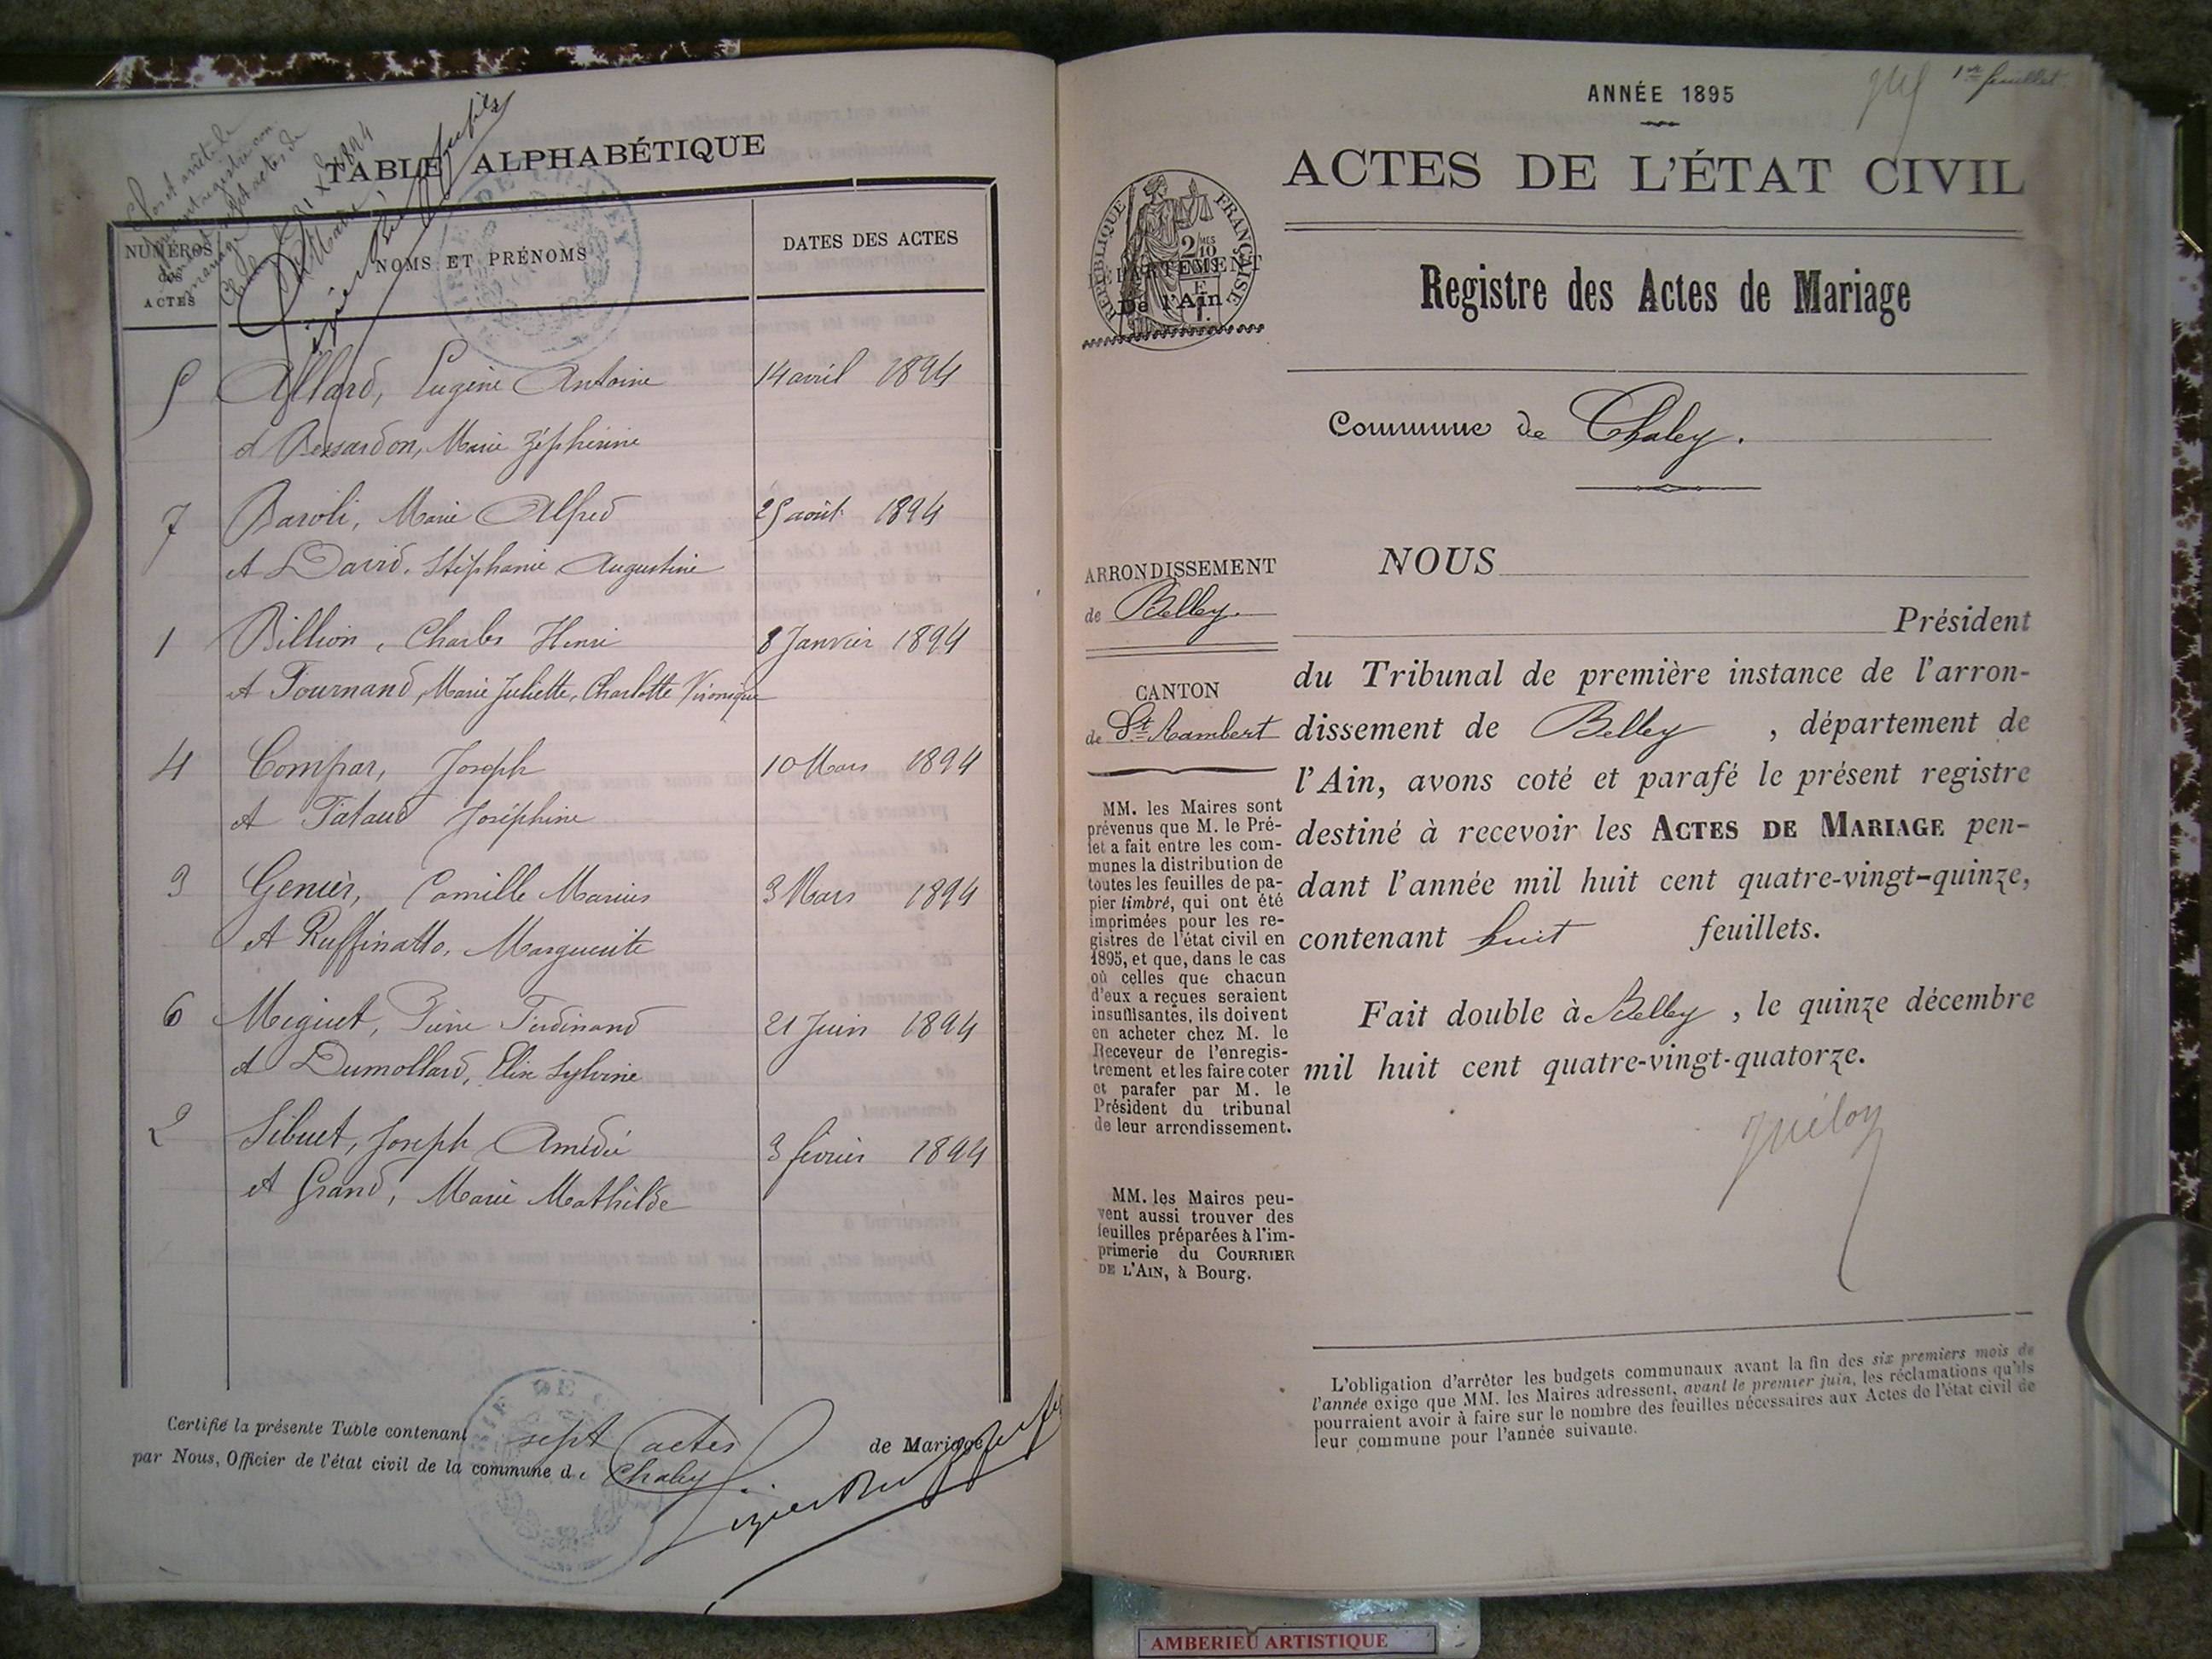 Clos et arrêté le
présent registre
contenant sept actes de
mariage
Chaley le 31 Xbre 1894
Le Maire
TABLE ALPHABÉTIQUE
NUMÉROS des ACTES
NOMS ET PRÉNOMS
DATES DES ACTES
5 Allard, Eugène Antoine 14 avril 1894
et Bessardon, Marie Zéphirine
7 Baroli, Marie Alfred 25 août 1894
et David, Stéphanie Augustine
1 Billion, Charles Henri 8 Janvier 1894
et Tournand, Marie Juliette, Charlotte Véronique
4 Compar, Joseph 10 Mars 1894
et Tataud Joséphine
3 Genier, Camille Marius 3 Mars 1894
et Ruffinatto, Marguerite
6 Miguet, Pierre Ferdinand 21 Juin 1894
et Dumollard, Elise Sylvine
2 Sibuet, Joseph Amédée 3 février 1894
et Grand, Marie Mathilde
Certifié la présente Table contenant sept actes de Mariage
par Nous, Officier de l'état civil de la commune de Chaley.
1er feuillet
ANNÉE 1895
ACTES DE L'ÉTAT CIVIL
RÉPUBLIQUE FRANÇAISE
2/10
DÉPARTEMENT
De l'Ain
Registre des Actes de Mariage
Commune de Chaley.
ARRONDISSEMENT
de Belley.
CANTON
de St Rambert
MM. les Maires sont
prévenus que M. le Pré-
fet a fait entre les com-
munes la distribution de
toutes les feuilles de pa-
pier timbré, qui ont été
imprimées pour les re-
gistres de l'état civil en
1895, et que, dans le cas
où celles que chacun
d'eux a reçues seraient
insuffisantes, ils doivent
en acheter chez M. le
Receveur de l'enregis-
trement et les faire coter
et parafer par M. le
Président du tribunal
de leur arrondissement.
MM. les Maires peu-
vent aussi trouver des
feuilles préparées à l'im-
primerie du COURRIER
DE L'AIN, à Bourg.
NOUS
Président
du Tribunal de première instance de l'arron-
dissement de Belley , département de
l'Ain, avons coté et parafé le présent registre
destiné à recevoir les ACTES DE MARIAGE pen-
dant l'année mil huit cent quatre-vingt-quinze,
contenant huit feuillets.
Fait double à Belley , le quinze décembre
mil huit cent quatre-vingt-quatorze.
L'obligation d'arrêter les budgets communaux avant la fin des six premiers mois de
l'année exige que MM. les Maires adressent, avant le premier juin, les réclamations qu'ils
pourraient avoir à faire sur le nombre des feuilles nécessaires aux Actes de l'état civil de
leur commune pour l'année suivante.
AMBERIEU ARTISTIQUE